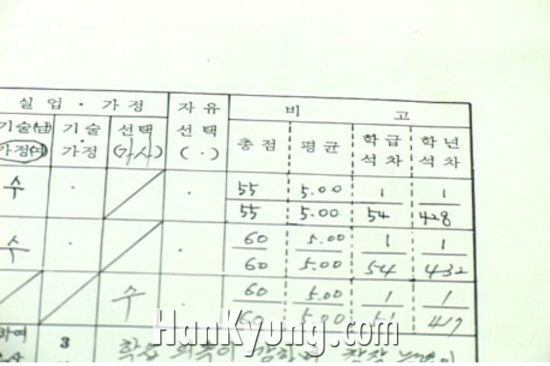 실업·가정 자유 비 고
기술(남) 기술· 선택 선택 총점 평균 학급 학년
가정(여) 가정 (가사) (·) 석차 석차
수 · · 55 5.00 1 1
55 5.00 54 428
수 · · 60 5.00 1 1
60 5.00 54 432
수 · 60 5.00 1 1
60 5.00 51 417
하여 3 학습 의욕이 강하며
HanKyung.com